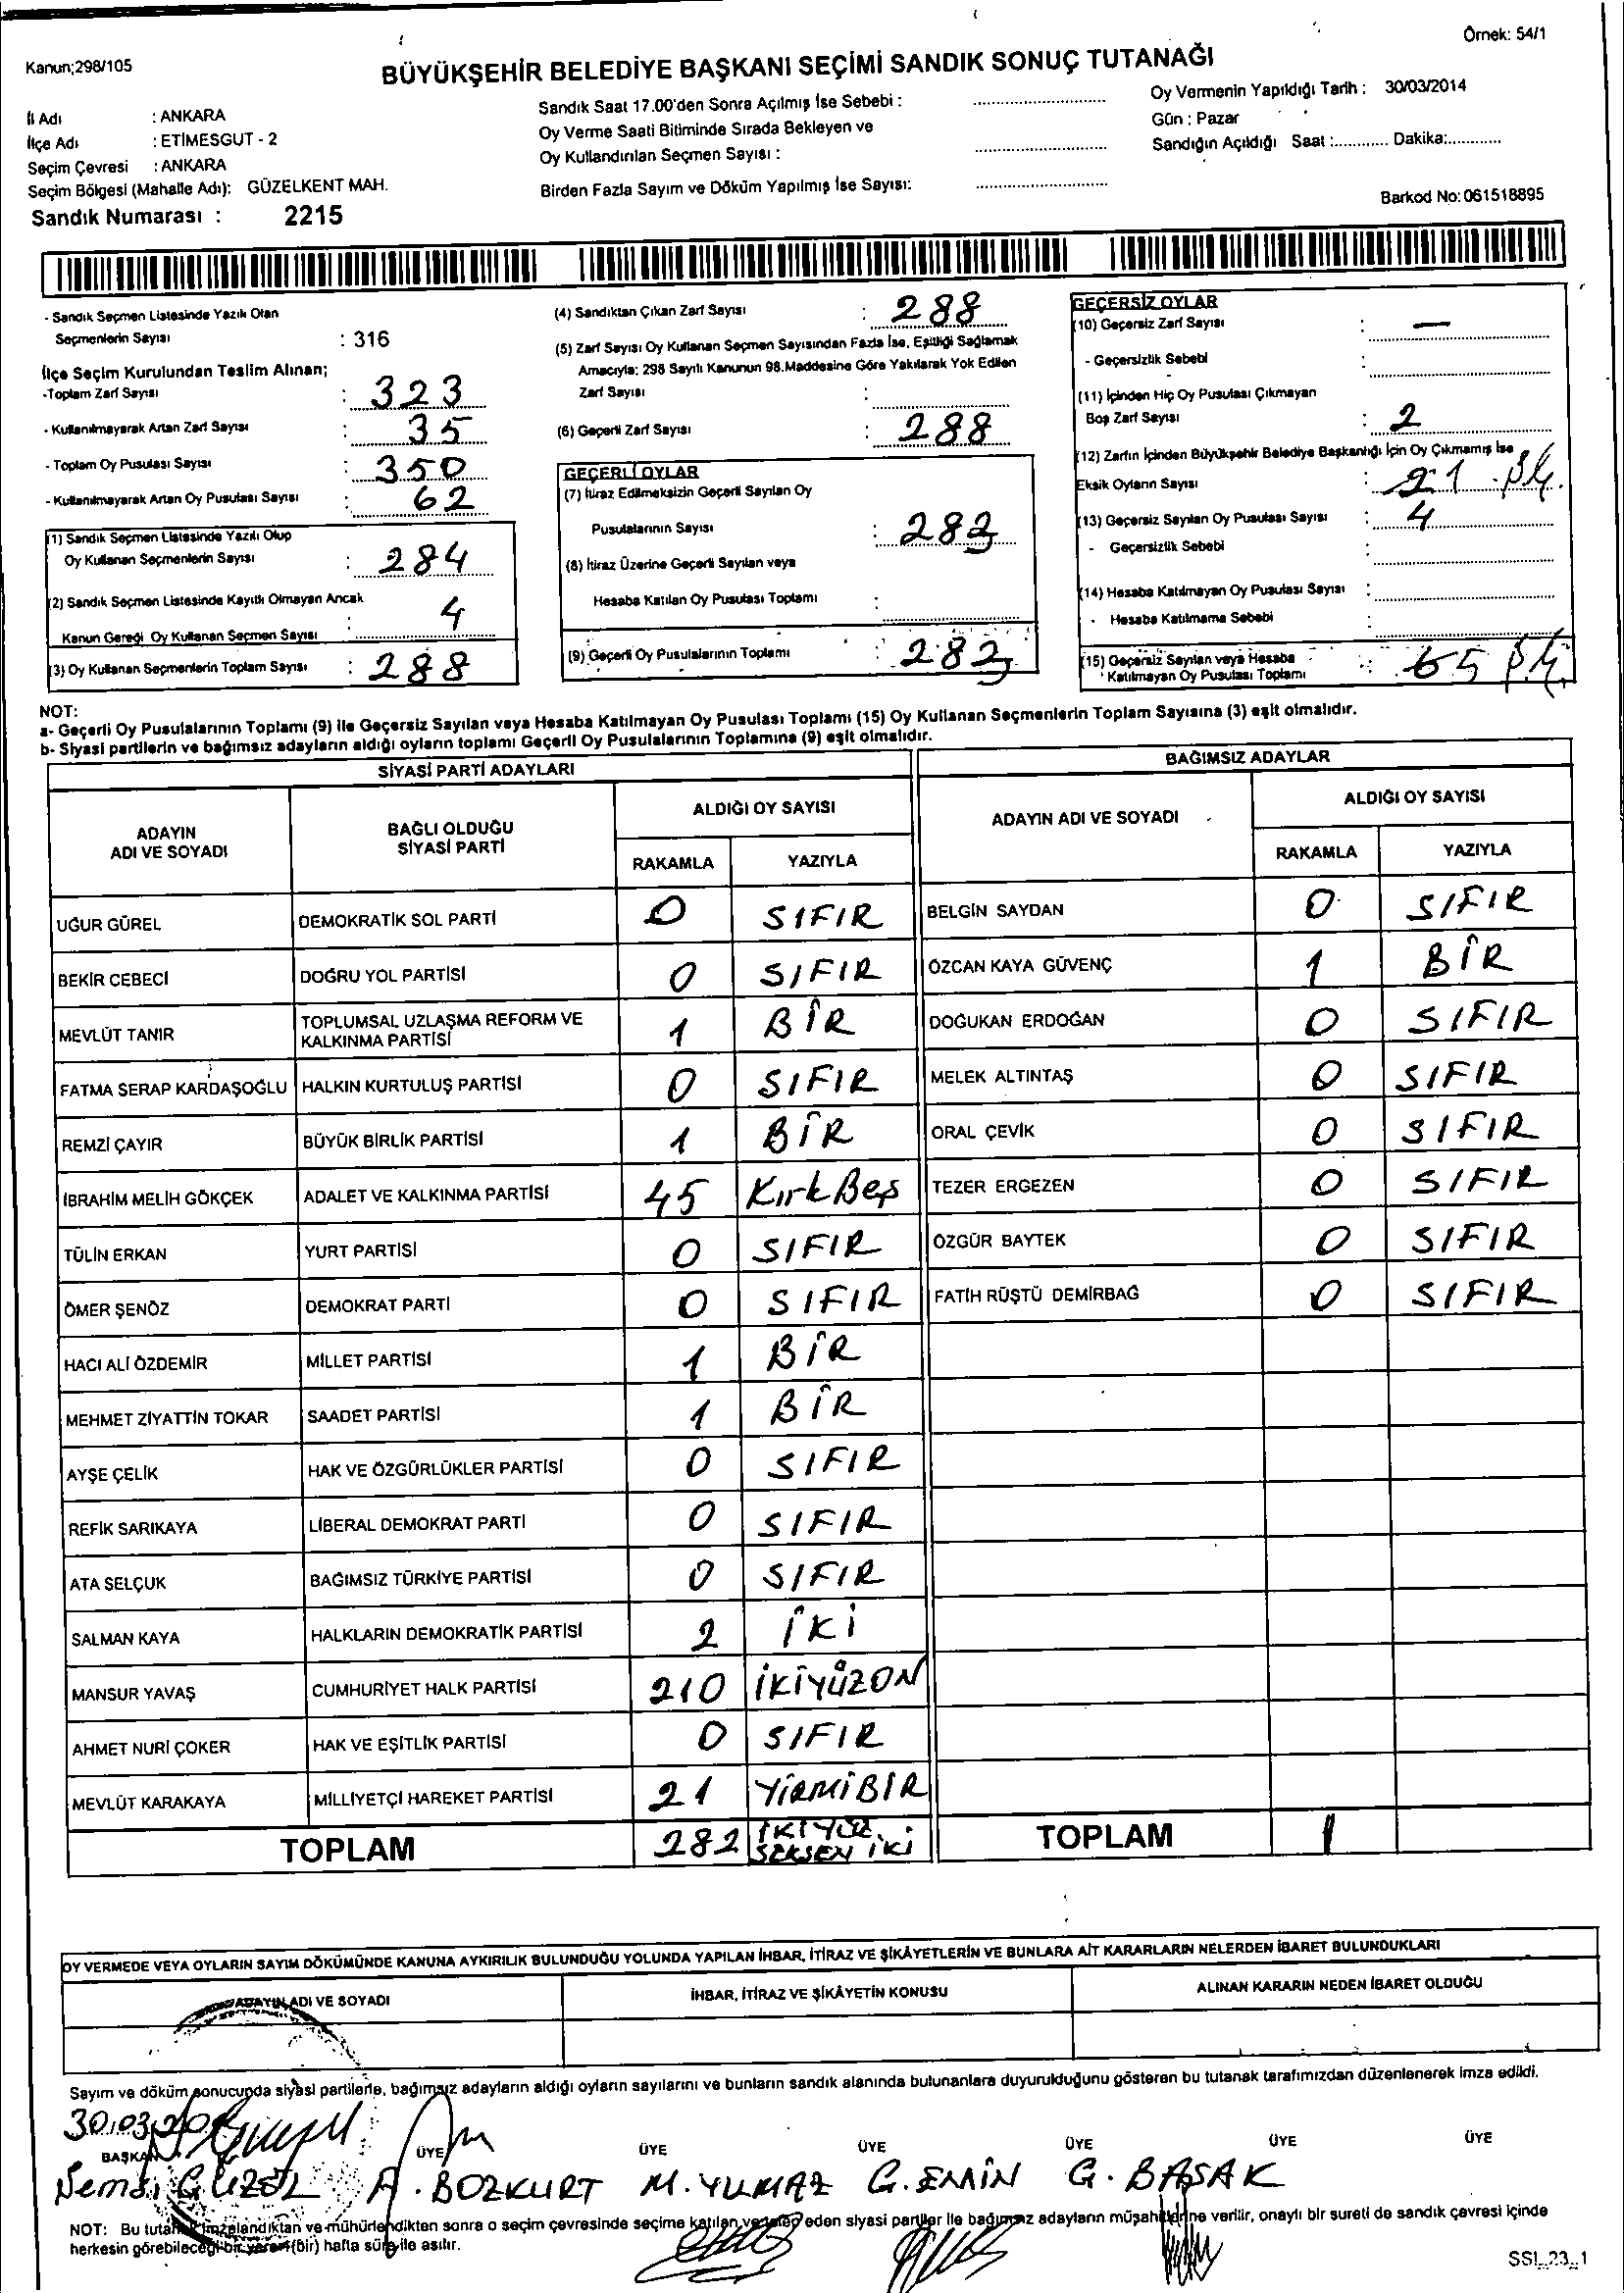 Örnek: 54/1
Kanun;298/105
BÜYÜKŞEHİR BELEDİYE BAŞKANI SEÇİMİ SANDIK SONUÇ TUTANAĞI
İl Adı : ANKARA
İlçe Adı : ETİMESGUT - 2
Seçim Çevresi : ANKARA
Seçim Bölgesi (Mahalle Adı): GÜZELKENT MAH.
Sandık Numarası : 2215
Sandık Saat 17.00'den Sonra Açılmış İse Sebebi :
Oy Verme Saati Bitiminde Sırada Bekleyen ve
Oy Kullandırılan Seçmen Sayısı :
Birden Fazla Sayım ve Döküm Yapılmış İse Sayısı:
Oy Vermenin Yapıldığı Tarih : 30/03/2014
Gün : Pazar
Sandığın Açıldığı Saat :............ Dakika:............
Barkod No: 061518895
- Sandık Seçmen Listesinde Yazılı Olan
Seçmenlerin Sayısı : 316
İlçe Seçim Kurulundan Teslim Alınan;
-Toplam Zarf Sayısı : 323
- Kullanılmayarak Artan Zarf Sayısı : 35
- Toplam Oy Pusulası Sayısı : 350
- Kullanılmayarak Artan Oy Pusulası Sayısı : 62
(1) Sandık Seçmen Listesinde Yazılı Olup
Oy Kullanan Seçmenlerin Sayısı : 284
(2) Sandık Seçmen Listesinde Kayıtlı Olmayan Ancak
Kanun Gereği Oy Kullanan Seçmen Sayısı : 4
(3) Oy Kullanan Seçmenlerin Toplam Sayısı : 288
(4) Sandıktan Çıkan Zarf Sayısı : 288
(5) Zarf Sayısı Oy Kullanan Seçmen Sayısından Fazla İse, Eşitliği Sağlamak
Amacıyla; 298 Sayılı Kanunun 98.Maddesine Göre Yakılarak Yok Edilen
Zarf Sayısı :
(6) Geçerli Zarf Sayısı : 288
GEÇERLİ OYLAR
(7) İtiraz Edilmeksizin Geçerli Sayılan Oy
Pusulalarının Sayısı : 283
(8) İtiraz Üzerine Geçerli Sayılan veya
Hesaba Katılan Oy Pusulası Toplamı :
(9) Geçerli Oy Pusulalarının Toplamı : 283
GEÇERSİZ OYLAR
(10) Geçersiz Zarf Sayısı : —
- Geçersizlik Sebebi :
(11) İçinden Hiç Oy Pusulası Çıkmayan
Boş Zarf Sayısı : 2
(12) Zarfın İçinden Büyükşehir Belediye Başkanlığı İçin Oy Çıkmamış İse
Eksik Oyların Sayısı :
(13) Geçersiz Sayılan Oy Pusulası Sayısı : 4
- Geçersizlik Sebebi :
(14) Hesaba Katılmayan Oy Pusulası Sayısı :
- Hesaba Katılmama Sebebi :
(15) Geçersiz Sayılan veya Hesaba
Katılmayan Oy Pusulası Toplamı :
NOT:
a- Geçerli Oy Pusulalarının Toplamı (9) ile Geçersiz Sayılan veya Hesaba Katılmayan Oy Pusulası Toplamı (15) Oy Kullanan Seçmenlerin Toplam Sayısına (3) eşit olmalıdır.
b- Siyasi partilerin ve bağımsız adayların aldığı oyların toplamı Geçerli Oy Pusulalarının Toplamına (9) eşit olmalıdır.
SİYASİ PARTİ ADAYLARI
ADAYIN ADI VE SOYADI BAĞLI OLDUĞU SİYASİ PARTİ ALDIĞI OY SAYISI
RAKAMLA YAZIYLA
UĞUR GÜREL DEMOKRATİK SOL PARTİ 0 SIFIR
BEKİR CEBECİ DOĞRU YOL PARTİSİ 0 SIFIR
MEVLÜT TANIR TOPLUMSAL UZLAŞMA REFORM VE KALKINMA PARTİSİ 1 BİR
FATMA SERAP KARDAŞOĞLU HALKIN KURTULUŞ PARTİSİ 0 SIFIR
REMZİ ÇAYIR BÜYÜK BİRLİK PARTİSİ 1 BİR
İBRAHİM MELİH GÖKÇEK ADALET VE KALKINMA PARTİSİ 45 KırkBeş
TÜLİN ERKAN YURT PARTİSİ 0 SIFIR
ÖMER ŞENÖZ DEMOKRAT PARTİ 0 SIFIR
HACI ALİ ÖZDEMİR MİLLET PARTİSİ 1 BİR
MEHMET ZİYATTİN TOKAR SAADET PARTİSİ 1 BİR
AYŞE ÇELİK HAK VE ÖZGÜRLÜKLER PARTİSİ 0 SIFIR
REFİK SARIKAYA LİBERAL DEMOKRAT PARTİ 0 SIFIR
ATA SELÇUK BAĞIMSIZ TÜRKİYE PARTİSİ 0 SIFIR
SALMAN KAYA HALKLARIN DEMOKRATİK PARTİSİ 2 İKİ
MANSUR YAVAŞ CUMHURİYET HALK PARTİSİ 210 İKİYÜZON
AHMET NURİ ÇOKER HAK VE EŞİTLİK PARTİSİ 0 SIFIR
MEVLÜT KARAKAYA MİLLİYETÇİ HAREKET PARTİSİ 21 YİRMİBİR
TOPLAM 282 İKİYÜZ SEKSEN İKİ
BAĞIMSIZ ADAYLAR
ADAYIN ADI VE SOYADI ALDIĞI OY SAYISI
RAKAMLA YAZIYLA
BELGİN SAYDAN 0 SIFIR
ÖZCAN KAYA GÜVENÇ 1 BİR
DOĞUKAN ERDOĞAN 0 SIFIR
MELEK ALTINTAŞ 0 SIFIR
ORAL ÇEVİK 0 SIFIR
TEZER ERGEZEN 0 SIFIR
ÖZGÜR BAYTEK 0 SIFIR
FATİH RÜŞTÜ DEMİRBAĞ 0 SIFIR
TOPLAM 1
OY VERMEDE VEYA OYLARIN SAYIM DÖKÜMÜNDE KANUNA AYKIRILIK BULUNDUĞU YOLUNDA YAPILAN İHBAR, İTİRAZ VE ŞİKÂYETLERİN VE BUNLARA AİT KARARLARIN NELERDEN İBARET BULUNDUKLARI
ADAYIN ADI VE SOYADI İHBAR, İTİRAZ VE ŞİKÂYETİN KONUSU ALINAN KARARIN NEDEN İBARET OLDUĞU
Sayım ve döküm sonucunda siyasi partilerle, bağımsız adayların aldığı oyların sayılarını ve bunların sandık alanında bulunanlara duyurulduğunu gösteren bu tutanak tarafımızdan düzenlenerek imza edildi.
BAŞKAN ÜYE ÜYE ÜYE ÜYE ÜYE ÜYE
GÜZEL A. BOZKURT M. YILMAZ G. EMİN G. BAŞAK
NOT: Bu tutanak imzalandıktan ve mühürlendikten sonra o seçim çevresinde seçime katılan ve talep eden siyasi partiler ile bağımsız adayların müşahitlerine verilir, onaylı bir sureti de sandık çevresi içinde
herkesin görebileceği bir yere (bir) hafta süre ile asılır.
SSI_23_1